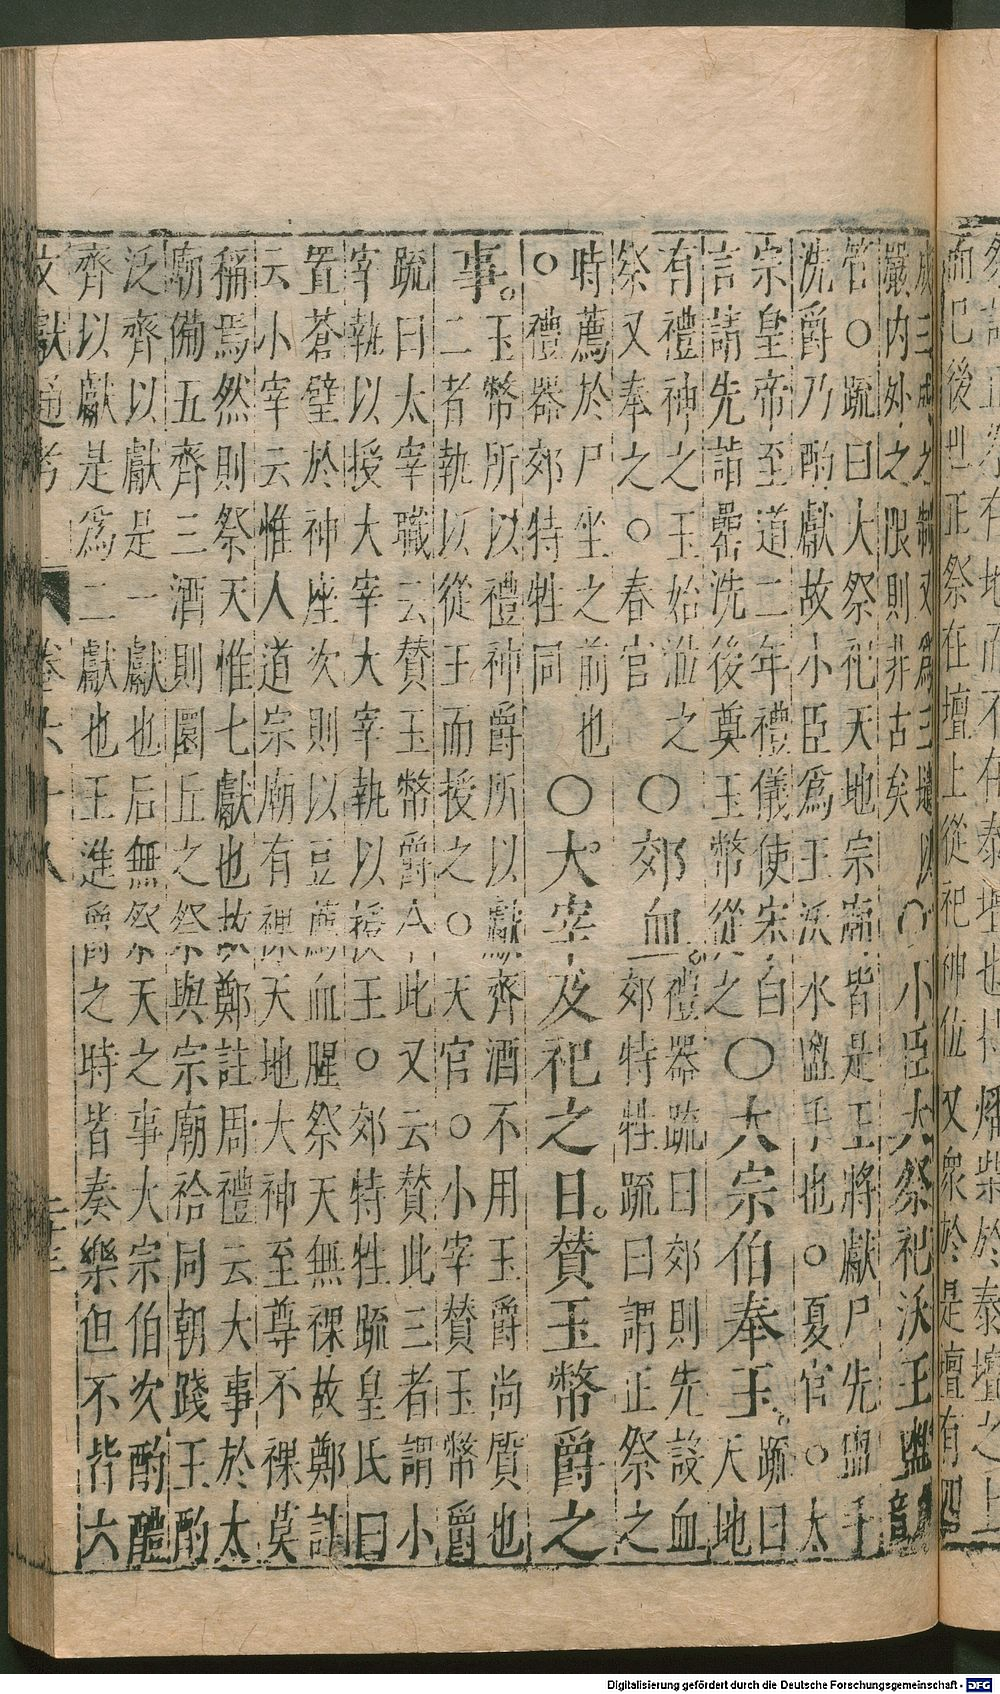 有地而不在泰壇也特燔柴於泰壇之上
而巳後世正祭在壇上從祀神位又衆於是壇有四
成三成之制又爲三壝以
嚴內外之限則非古矣
○小臣大祭祀沃王盥
管○䟽曰大祭祀天地宗廟皆是王將獻尸先盥手
洗爵乃酌獻故小臣爲王沃水盥手也○夏官○太
宗皇帝至道二年禮儀使宋白
言請先詣罍洗後奠玉幣從之
○大宗伯奉玉。
䟽曰
天地
有禮神之玉始涖之
祭又奉之○春官
○郊血。
禮器䟽曰郊則先設血
郊特牲䟽曰謂正祭之
時薦於尸坐之前也
○禮器郊特牲同
○大宰及祀之日。贊玉幣爵之
事。
玉幣所以禮神爵所以獻齊酒不用玉爵尚質也
二者執以從王而授之○天官○小宰贊玉幣爵
䟽曰太宰職云贊玉幣爵今此又云贊此三者謂小
宰執以授大宰大宰執以授王○郊特牲䟽皇氏曰
置蒼璧於神座次則以豆薦血腥祭天無祼故鄭註
云小宰云惟人道宗廟有祼天地大神至尊不祼莫
稱焉然則祭天惟七獻也故鄭註周禮云大事於太
廟備五齊三酒則圜丘之祭與宗廟祫同朝踐王酌
泛齊以獻是一獻也后無祭天之事大宗伯次酌醴
齊以獻是爲二獻也王進爵之時皆奏樂但不皆六
文獻通考 卷六十八 二十三
Digitalisierung gefördert durch die Deutsche Forschungsgemeinschaft - DFG